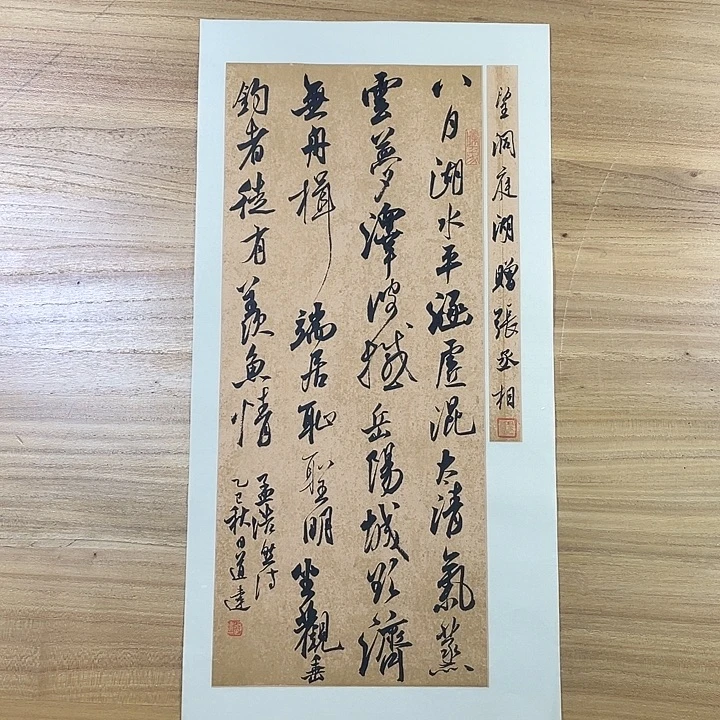 望洞庭湖贈張丞相
八月湖水平涵虛混太清氣蒸
雲夢澤波撼岳陽城欲濟
無舟楫端居恥聖明坐觀垂
釣者徒有羨魚情
孟浩然詩
乙巳秋日道達